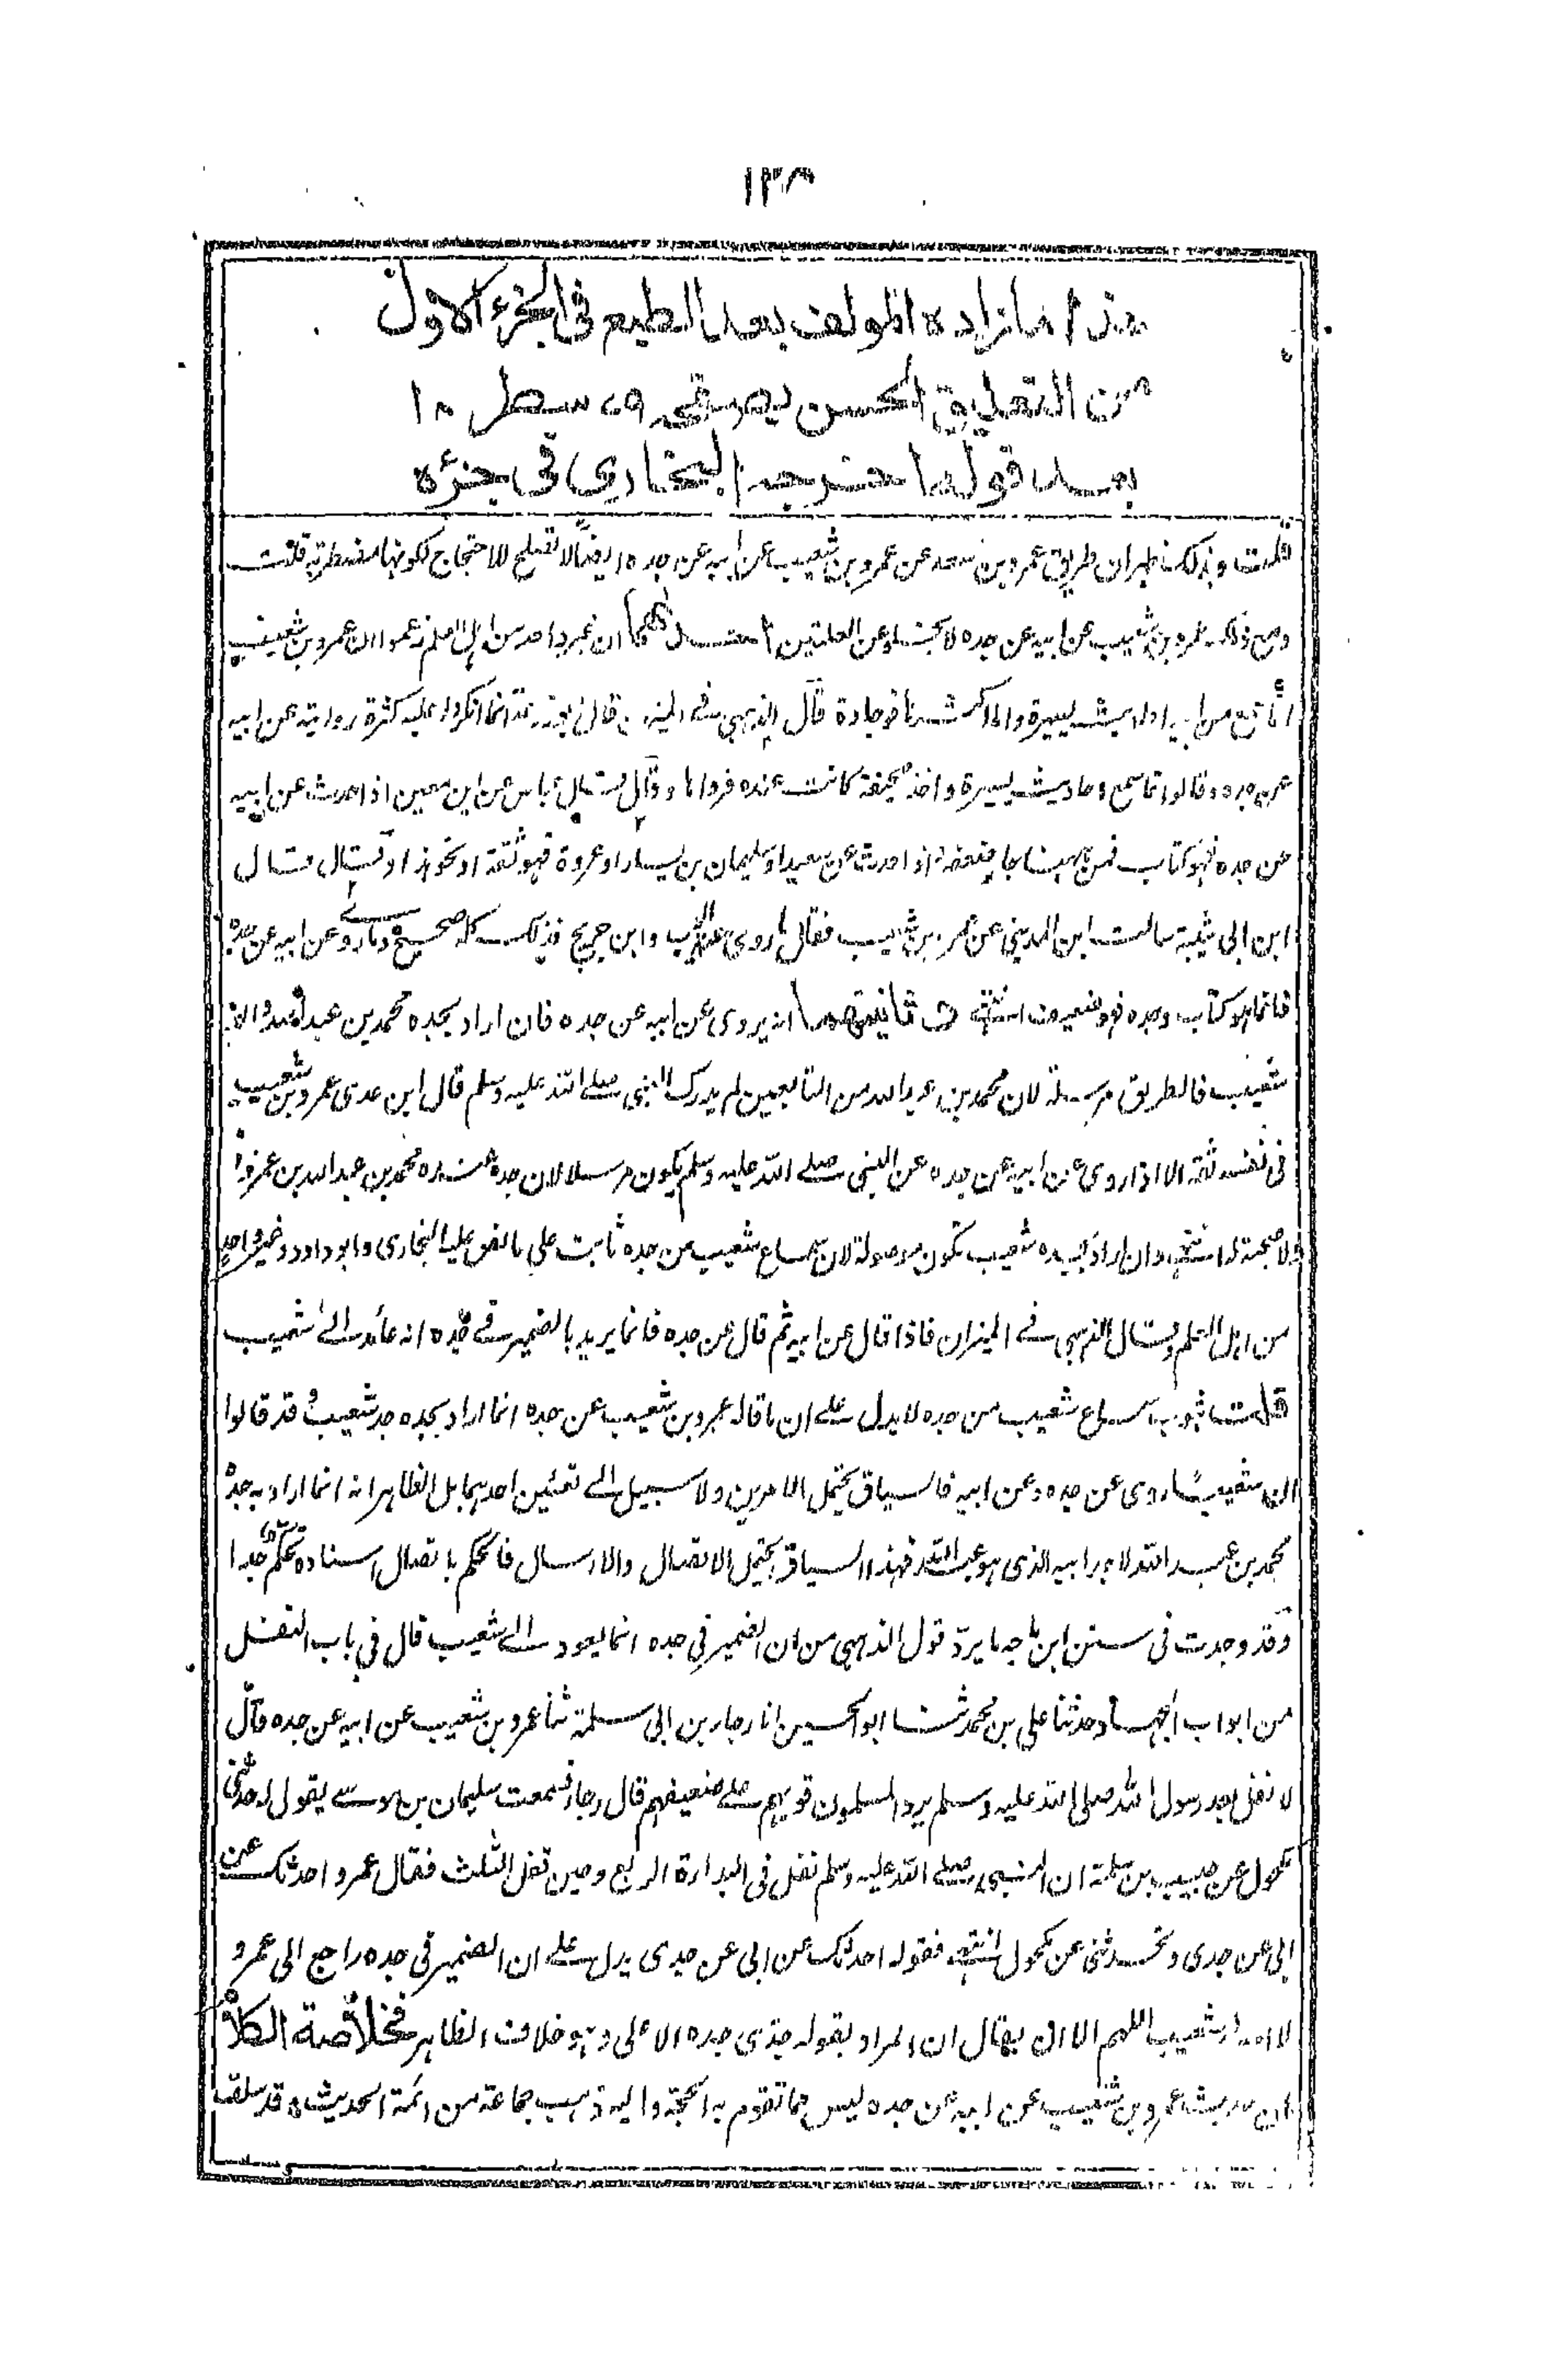 ١٣٨
هذا ما زاده المولف بعد الطبع فى الجزء الاول
من التعليق الحسن بصفحة ٧٩ سطر ١٠
بعد قوله اخرجه البخاري فى جزئه
قلت وبذلك ظهر ان طريق عمرو بن سعد عن عمرو بن شعيب عن ابيه عن جده ايضاً لا تصلح للاحتجاج لكونها مضطربة قلت
ومع ذلك عمرو بن شعيب عن ابيه عن جده لا يخلو عن العلتين احدهما ان غير واحد من اهل العلم زعموا ان عمرو بن شعيب
انما سمع من ابيه احاديث يسيرة والاكثر انما هو وجادة قال الذهبي فى الميزان قال ابو زرعة انما انكروا عليه كثرة روايته عن ابيه
عن جده وقالوا انما سمع احاديث يسيرة واخذ صحيفة كانت عنده فرواها وقال قال عباس عن ابن معين اذا حدث عن ابيه
عن جده فهو كتاب فمن ههنا جاء ضعفه اذا حدث عن سعيد او سليمان بن يسار او عروة فهو ثقة او نحو هذا وقال قال
ابن ابى شيبة سالت ابن المدينى عن عمرو بن شعيب فقال ما روى عنه ايوب وابن جريج فذلك كله صحيح وما روى عن ابيه عن جده
فانما هو كتاب وجده فهو ضعيف انتهى وثانيتهما انه يروى عن ابيه عن جده فان اراد بجده محمد بن عبد الله والد
شعيب فالطريق مرسلة لان محمد بن عبد الله من التابعين لم يدرك النبى صلى الله عليه وسلم قال ابن عدى عمرو بن شعيب
فى نفسه ثقة الا اذا روى عن ابيه عن جده عن النبى صلى الله عليه وسلم يكون مرسلا لان جده عنده محمد بن عبد الله بن عمرو
ولا صحبة له انتهى وان اراد بجده شعيب تكون موصولة لان سماع شعيب من جده ثابت على ما نص عليه البخارى وابو داود وغير واحد
من اهل العلم وقال الذهبى فى الميزان فاذا قال عن ابيه ثم قال عن جده فانما يريد بالضمير فى جده انه عائد الى شعيب
قلت ثبوت سماع شعيب من جده لا يدل على ان ما قاله عمرو بن شعيب عن جده انما اراد بجده جد شعيب وقد قالوا
ان شعيبًا روى عن جده وعن ابيه فالسياق يحتمل الامرين ولا سبيل الى تعيين احدهما بل الظاهر انه انما اراد به جده
محمد بن عبد الله لا جد ابيه الذى هو عبد الله فهذا السياق يحتمل الاتصال والارسال فالحكم باتصال اسناده تحكم جدا
وقد وجدت فى سنن ابن ماجه ما يرد قول الذهبى من ان الضمير فى جده انما يعود الى شعيب قال فى باب النفل
من ابواب الجهاد حدثنا على بن محمد ثنا ابو الحسين انا رجاء بن ابى سلمة ثنا عمرو بن شعيب عن ابيه عن جده قال
لا نفل بعد رسول الله صلى الله عليه وسلم يرد المسلمون قويهم على ضعيفهم قال رجاء فسمعت سليمان بن موسى يقول له حدثنى
مكحول عن حبيب بن سلمة ان النبى صلى الله عليه وسلم نفل فى البداءة الربع وحين قفل الثلث فقال عمرو احدثك عن
ابى عن جدى وتحدثنى عن مكحول انتهى فقوله احدثك عن ابى عن جدى يدل على ان الضمير فى جده راجع الى عمرو
لا الى شعيب اللهم الا ان يقال ان المراد بقوله جدى جده الاعلى وهو خلاف الظاهر فخلاصة الكلام
ان حديث عمرو بن شعيب عن ابيه عن جده ليس مما تقوم به الحجة واليه ذهب جماعة من ائمة الحديث وقد سلف